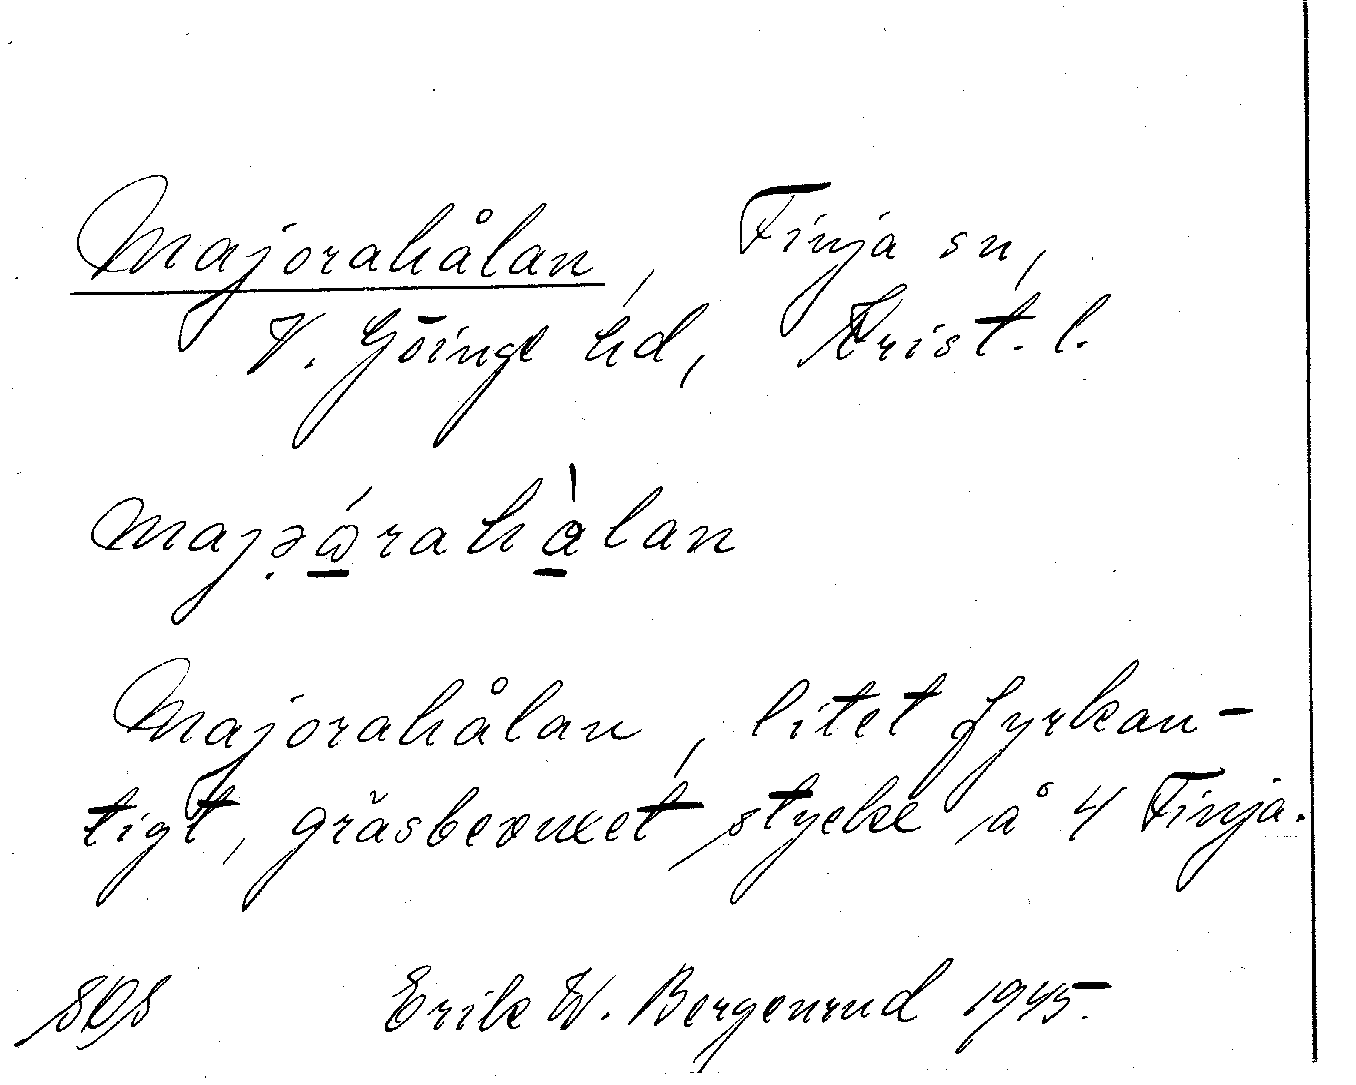 Majorahålan, Finja sn,
V. Göinge hd, Krist. l.
Majorahålan, litet fyrkan-
tigt, gräsbevuxet stycke å 4 Finja.
Erik W. Bergenrud 1945.